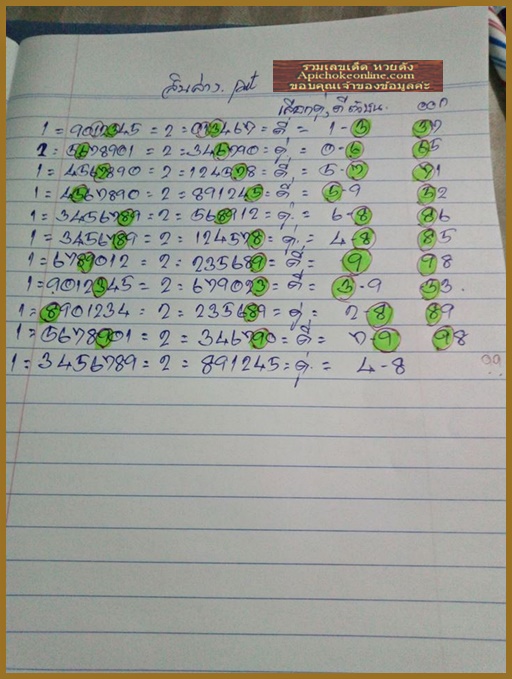 รวมเลขเด็ด หวยดัง
Apichokeonline.com
ขอบคุณเจ้าของข้อมูลค่ะ
ออก
1 = 9012345 = 2 = 013467 = คี่ = 1-3 37
1 = 5678901 = 2 = 345790 = คู่ = 0-6 65
1 = 4567890 = 2 = 124578 = คี่ = 5-7 71
1 = 4567890 = 2 = 891245 = คี่ = 5-9 52
1 = 3456789 = 2 = 568912 = คู่ = 6-8 86
1 = 3456789 = 2 = 124578 = คู่ = 4-8 85
1 = 6789012 = 2 = 235689 = คี่ = 9 98
1 = 9012345 = 2 = 679023 = คี่ = 3-9 53
1 = 8901234 = 2 = 235689 = คู่ = 2-8 89
1 = 5678901 = 2 = 346790 = คี่ = 7-9 98
1 = 3456789 = 2 = 891245 = คู่ = 4-8